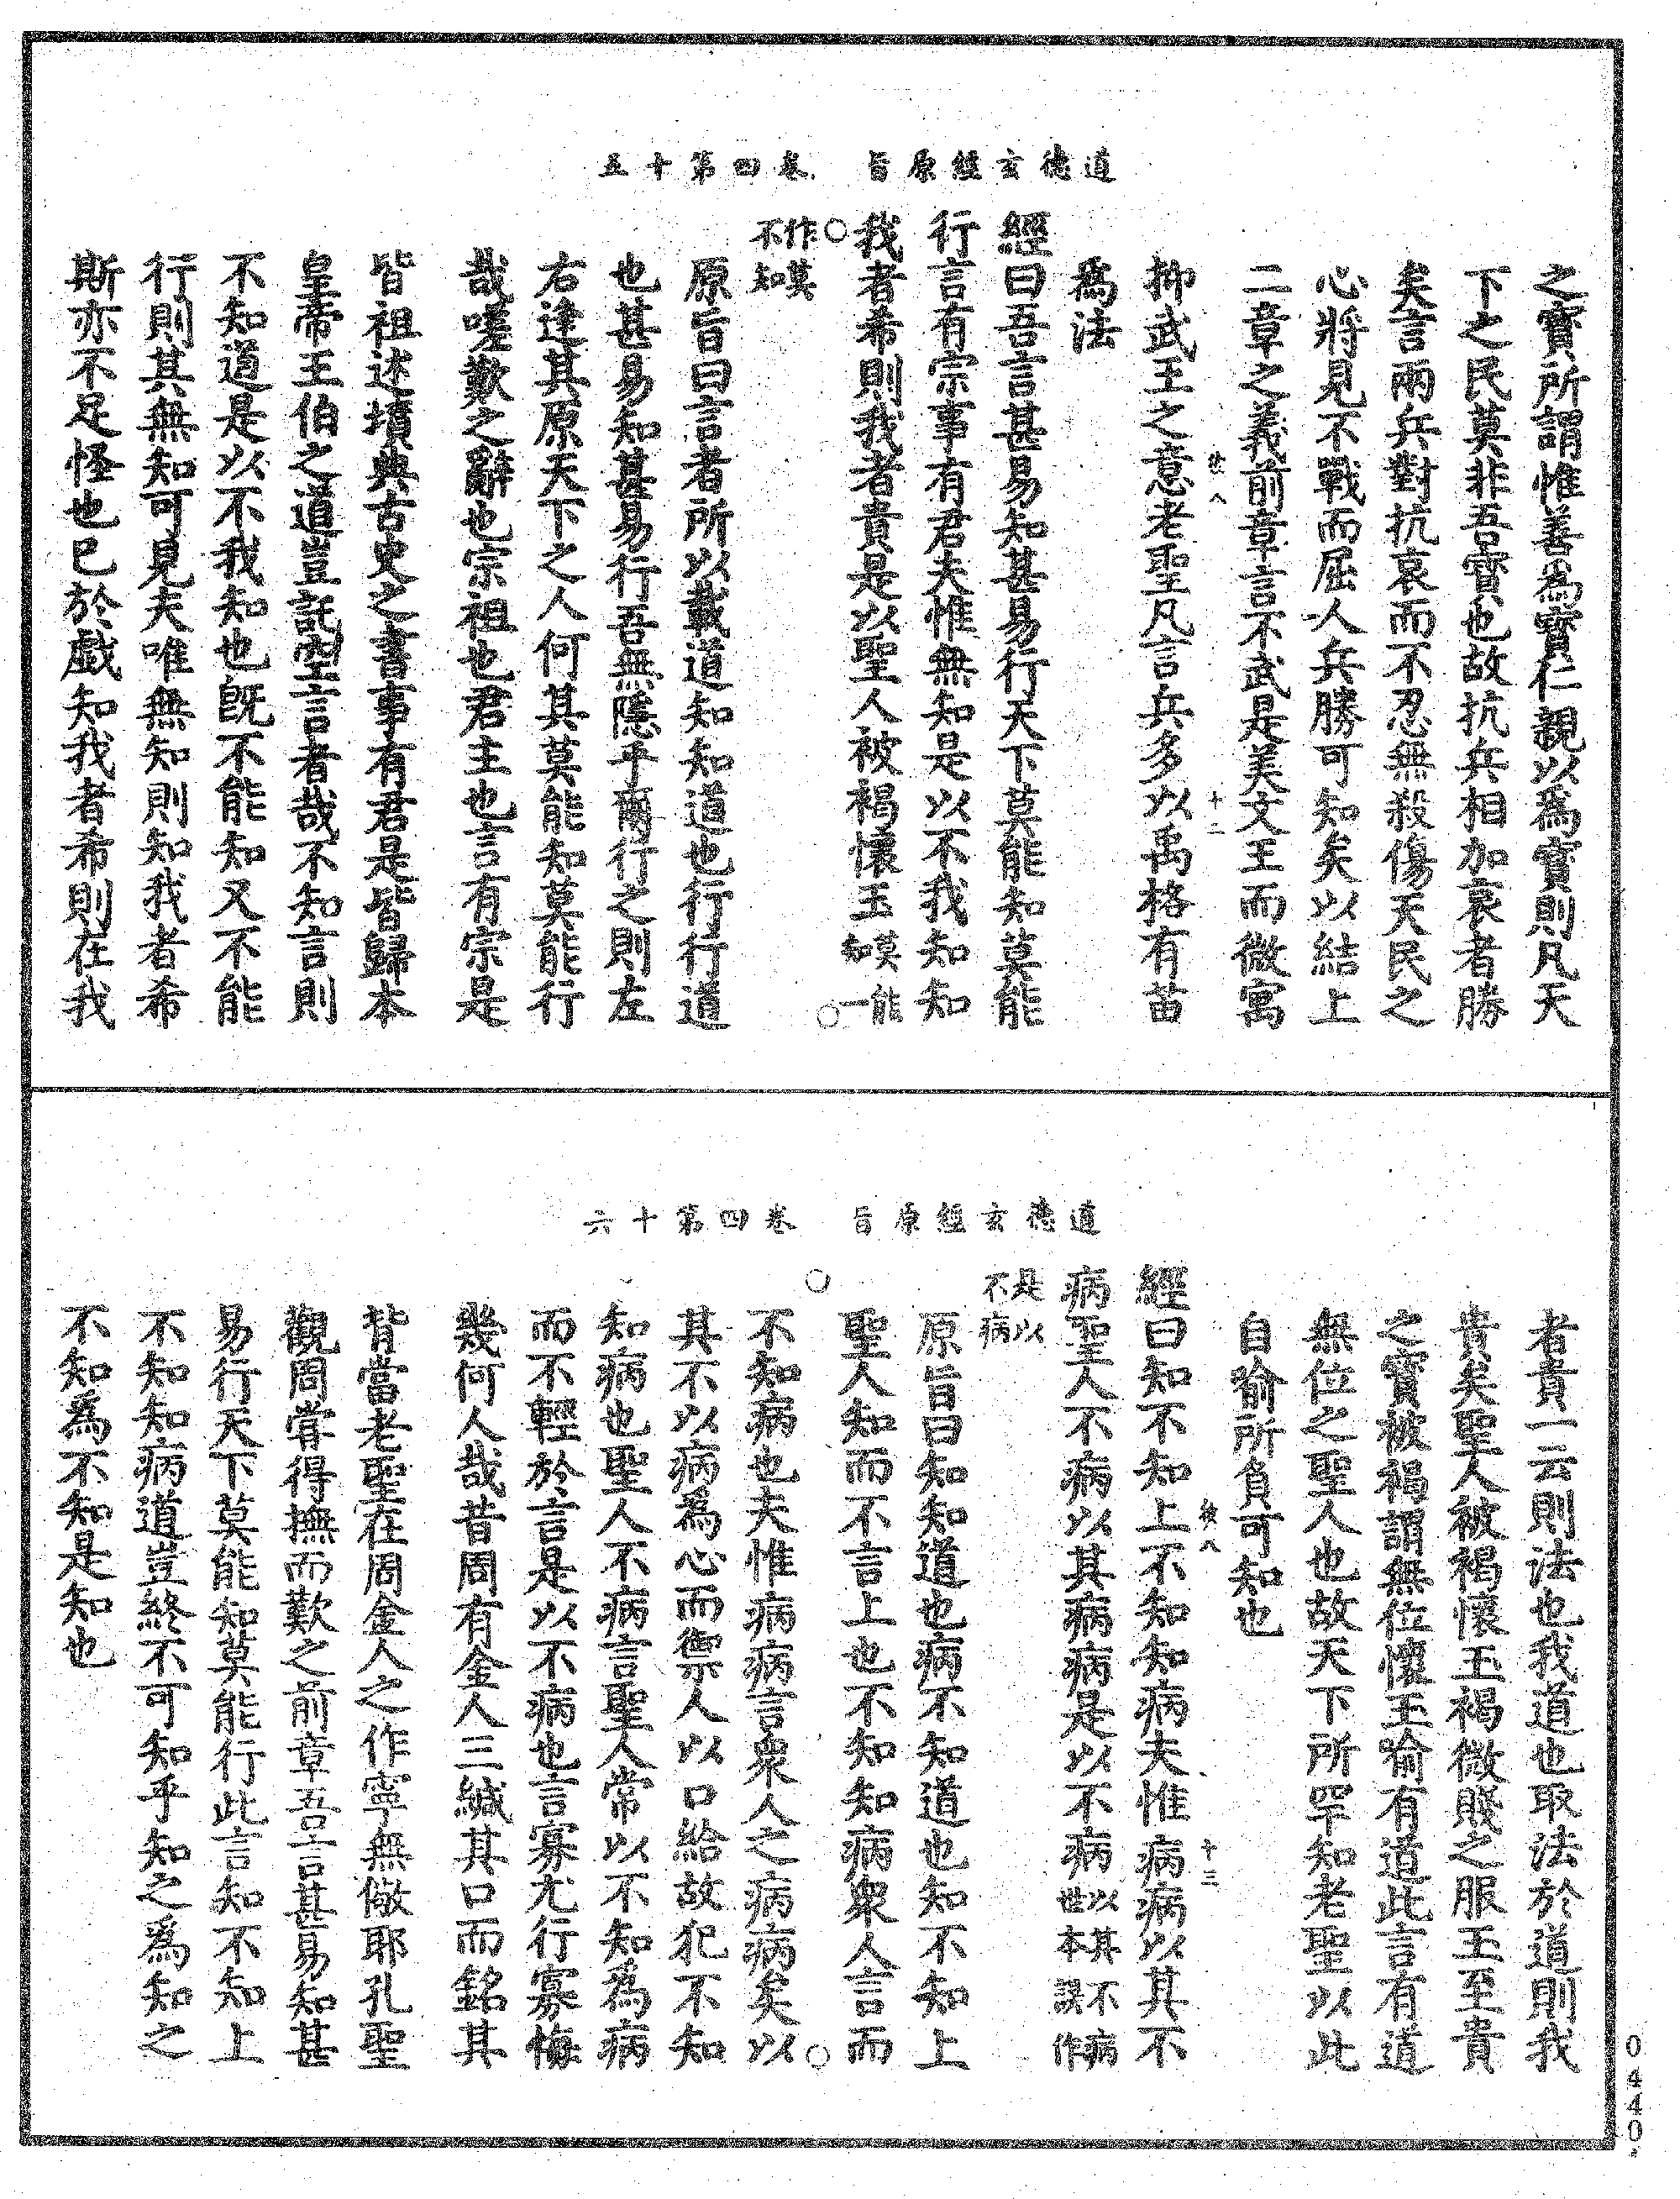 道德玄經原旨　卷四第十五
之寶所謂惟善爲寶仁親以爲寶則凡天
下之民莫非吾寶也故抗兵相加哀者勝
矣言兩兵對抗哀而不忍無殺傷天民之
心將見不戰而屈人兵勝可知矣以結上
二章之義前章言不武是美文王而微寓
抑武王之意老聖凡言兵多以禹格有苗
爲法
經曰吾言甚易知甚易行天下莫能知莫能
行言有宗事有君夫惟無知是以不我知知
我者希則我者貴是以聖人被褐懷玉莫能知一
作莫不知
原旨曰言者所以載道知知道也行行道
也甚易知甚易行吾無隱乎爾行之則左
右逢其原天下之人何其莫能知莫能行
哉嗟歎之辭也宗祖也君主也言有宗是
皆祖述墳典古史之書事有君是皆歸本
皇帝王伯之道豈託空言者哉不知言則
不知道是以不我知也旣不能知又不能
行則其無知可見夫唯無知則知我者希
斯亦不足怪也已於戲知我者希則在我
道德玄經原旨　卷四第十六
者貴一云則法也我道也取法於道則我
貴矣聖人被褐懷玉褐微賤之服玉至貴
之寶被褐謂無位懷玉喻有道此言有道
無位之聖人也故天下所罕知老聖以此
自喻所負可知也
經曰知不知上不知知病夫惟病病以其不
病聖人不病以其病病是以不病以其不病世本誤作
是以不病
原旨曰知知道也病不知道也知不知上
聖人知而不言上也不知知病衆人言而
不知病也夫惟病病言衆人之病病矣以
其不以病爲心而禦人以口給故犯不知
知病也聖人不病言聖人常以不知爲病
而不輕於言是以不病也言寡尤行寡悔
幾何人哉昔周有金人三緘其口而銘其
背當老聖在周金人之作寧無儆耶孔聖
觀周嘗得撫而歎之前章吾言甚易知甚
易行天下莫能知莫能行此言知不知上
不知知病道豈終不可知乎知之爲知之
不知爲不知是知也
0440